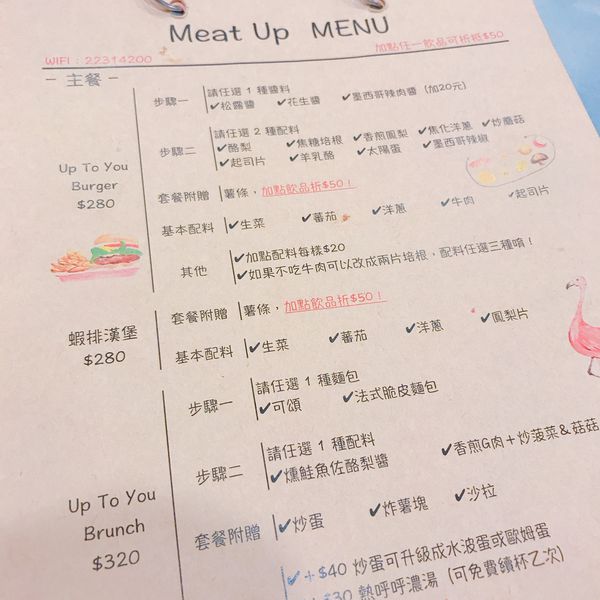 Meat Up MENU
WIFI：22314200
加點任一飲品可折抵$50
- 主餐 -
Up To You
Burger
$280
步驟一
請任選 1 種醬料
✔松露醬 ✔花生醬 ✔墨西哥辣肉醬 (加20元)
步驟二
請任選 2 種配料
✔酪梨 ✔焦糖培根 ✔香煎鳳梨 ✔焦化洋蔥 ✔炒蘑菇
✔起司片 ✔羊乳酪 ✔太陽蛋 ✔墨西哥辣椒
套餐附贈 薯條，加點飲品折$50！
基本配料 ✔生菜 ✔蕃茄 ✔洋蔥 ✔牛肉 ✔起司片
其他
✔加點配料每樣$20
✔如果不吃牛肉可以改成兩片培根，配料任選三種唷！
蝦排漢堡
$280
套餐附贈 薯條，加點飲品折$50！
基本配料 ✔生菜 ✔蕃茄 ✔洋蔥 ✔鳳梨片
Up To You
Brunch
$320
步驟一
請任選 1 種麵包
✔可頌 ✔法式脆皮麵包
步驟二
請任選 1 種配料
✔燻鮭魚佐酪梨醬 ✔香煎G肉＋炒菠菜&菇菇
套餐附贈 ✔炒蛋 ✔炸薯塊 ✔沙拉
✔＋$40 炒蛋可升級成水波蛋或歐姆蛋
＋$30 熱呼呼濃湯 (可免費續杯乙次)